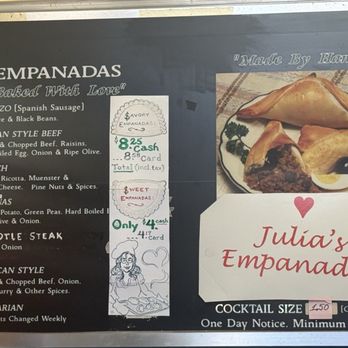 EMPANADAS
Baked With Love"
ZO [Spanish Sausage]
e & Black Beans.
AN STYLE BEEF
& Chopped Beef, Raisins,
iled Egg, Onion & Ripe Olive.
CH
Ricotta, Muenster &
Cheese. Pine Nuts & Spices.
AS
Potato, Green Peas. Hard Boiled
ive & Onion.
OTLE STEAK
Onion
CAN STYLE
& Chopped Beef, Onion.
urry & Other Spices.
ARIAN
ts Changed Weekly
SAVORY
EMPANADAS:
$8.25 Cash
8.58 Card
Total (incl. tax)
SWEET
EMPANADAS:
Only $4 cash
4.17 card
"Made By Han
Julia's
Empanad
COCKTAIL SIZE 1.50
One Day Notice. Minimum